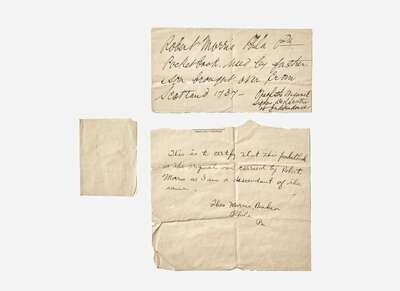 Robert Morris Phila Pa
Pocket book used by father
& son brought over from
Scotland 1737 –
Signer
This is to certify that this pocketbook
is the original one carried by Robert
Morris as I am a descendant of the
same.
Morris
Phila
Pa